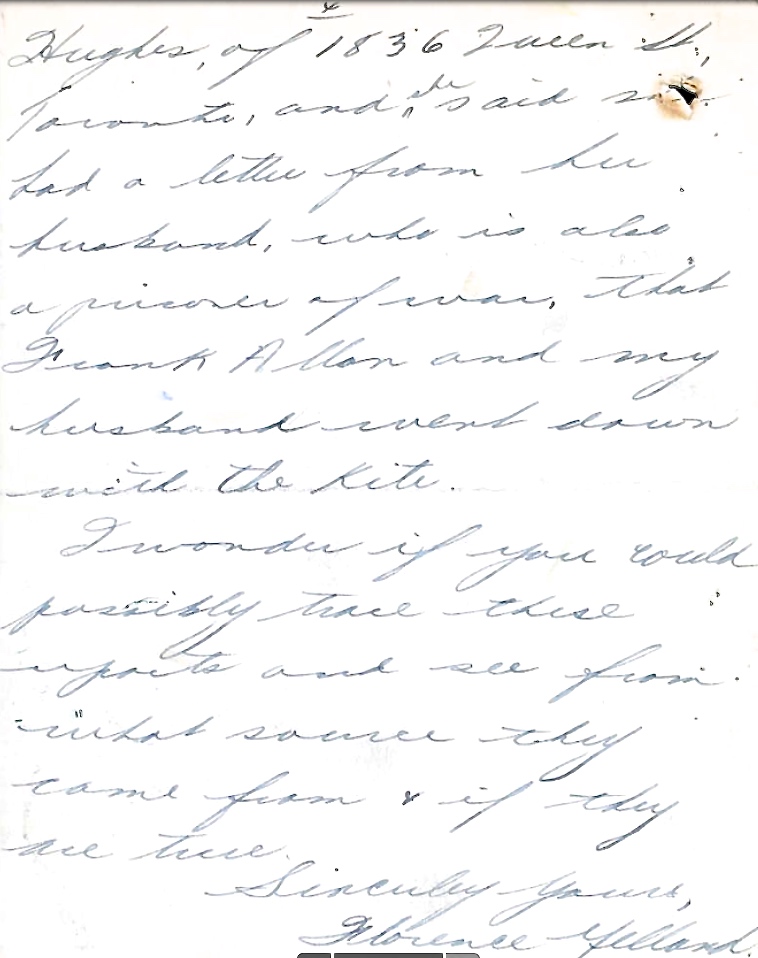 4
Hughes, of 1836 Queen St.,
Toronto, and, she said
had a letter from her
husband, who is also
a prisoner of war, that
Frank Allan and my
husband went down
with the Kite.
I wonder if you could
possibly trace these
reports and see from
what source they
came from & if they
are true.
Sincerely yours,
Florence Yelland.